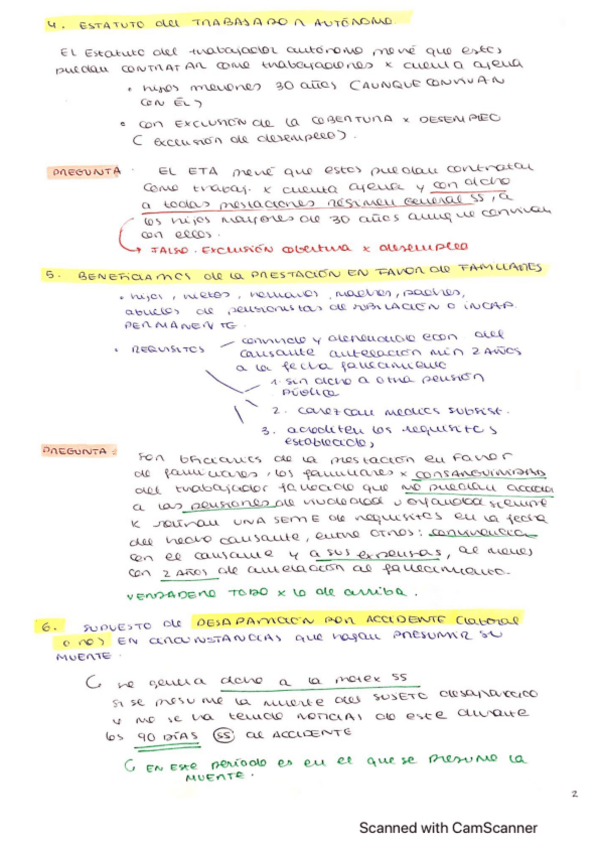 4. ESTATUTO del TRABAJADOR AUTÓNOMO.
El Estatuto del trabajador autónomo prevé que estos
puedan CONTRATAR como trabajadores x cuenta ajena
• hijos menores 30 años (AUNQUE CONVIVAN
CON ÉL)
• con EXCLUSIÓN de la COBERTURA x DESEMPLEO
( exclusión de desempleo).
PREGUNTA. EL ETA prevé que estos puedan contratar
como trabaj. x cuenta ajena y con dcho
a todas prestaciones régimen general SS, a
los hijos mayores de 30 años aunque convivan
con ellos.
→ FALSO. EXCLUSIÓN cobertura x desempleo
5. BENEFICIARIOS de la PRESTACIÓN EN FAVOR de FAMILIARES
• hijos, nietos, hermanos, madres, padres,
abuelos de pensionistas de JUBILACIÓN o INCAP.
PERMANENTE.
• REQUISITOS convivido y dependido econ. del
causante antelación min 2 AÑOS
a la fecha fallecimiento
1. sin dcho a otra pensión
pública
2. carezcan medios subsist.
3. acrediten los requisitos
establecidos
PREGUNTA: Son bficiarios de la prestación en favor
de familiares, los familiares x consanguinidad
del trabajador fallecido que no puedan acceder
a las pensiones de viudedad u orfandad siempre
k reúnan UNA SERIE de requisitos en la fecha
del hecho causante, entre otros: convivencia
con el causante y a sus expensas, al menos
con 2 AÑOS de antelación al fallecimiento.
VERDADERO TODO x lo de arriba.
6. SUPUESTO de DESAPARICIÓN POR ACCIDENTE (laboral
o no) EN CIRCUNSTANCIAS que hagan PRESUMIR SU
MUERTE.
se genera dcho a la SS
si se presume la muerte del SUJETO desaparecido
y no se ha tenido noticias de este durante
los 90 DÍAS (SS) al ACCIDENTE
EN este período es en el que se PRESUME LA
MUERTE.
2
Scanned with CamScanner